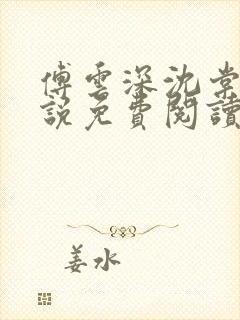 傅雲深沈棠
說免費閱讀
姜水